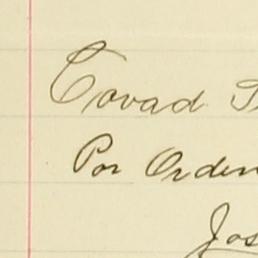 Covad
Por Orden
Jos